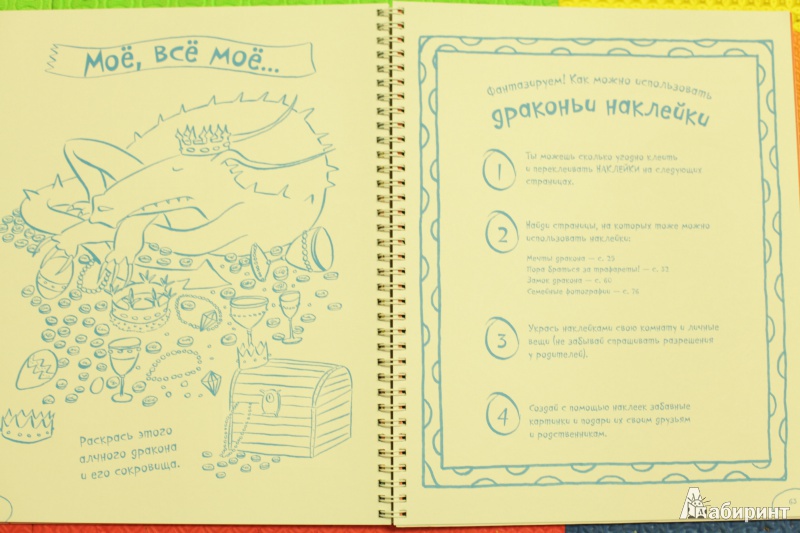 Моё, всё моё...
Раскрась этого
алчного дракона
и его сокровища.
Фантазируем! Как можно использовать
драконьи наклейки
1
Ты можешь сколько угодно клеить
и переклеивать НАКЛЕЙКИ на следующих
страницах.
2
Найди страницы, на которых тоже можно
использовать наклейки:
Мечты дракона — с. 25
Пора браться за трафареты! — с. 52
Замок дракона — с. 61
Семейные фотографии — с. 76
3
Укрась наклейками свою комнату и личные
вещи (не забывай спрашивать разрешения
у родителей).
4
Создай с помощью наклеек забавные
картинки и подари их своим друзьям
и родственникам.
63
Лабиринт